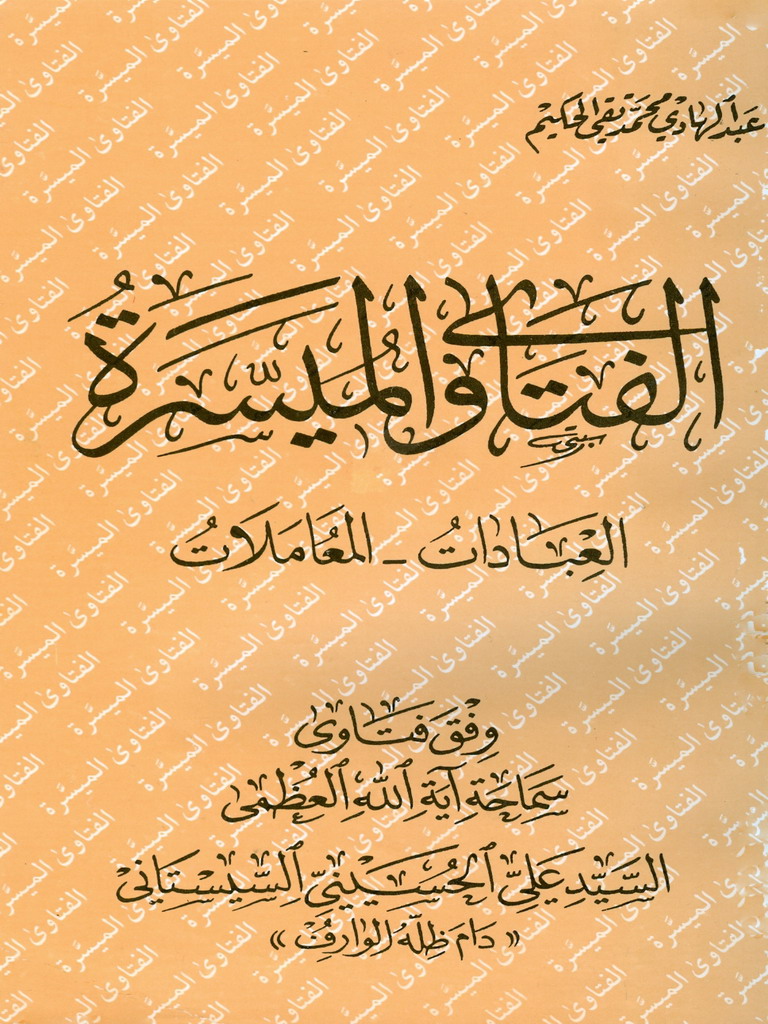 عبد الهادي محمد تقي الحكيم
الفتاوى الميسرة
العبادات - المعاملات
وفق فتاوى
سماحة آية الله العظمى
السيد علي الحسيني السيستاني
« دام ظله الوارف »